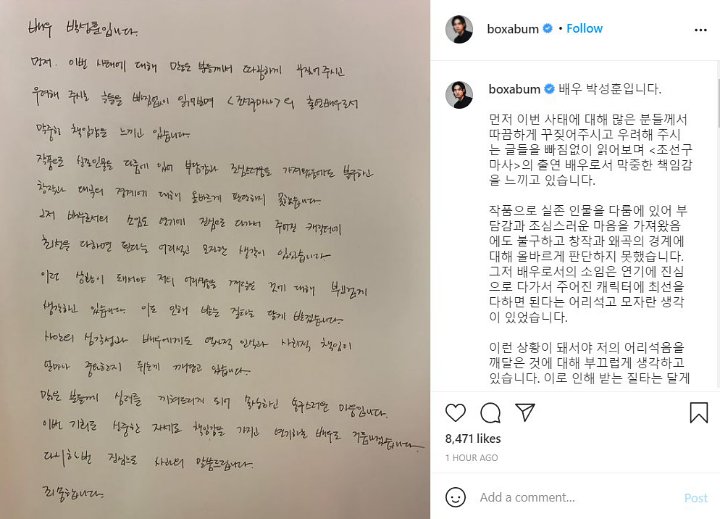 배우 박성훈입니다.
먼저, 이번 사태에 대해 많은 분들께서 따끔하게 꾸짖어 주시고
우려해 주시는 글들을 빠짐없이 읽어보며 <조선구마사>의 출연배우로서
막중한 책임감을 느끼고 있습니다.
작품으로 실존인물을 다룸에 있어 부담감과 조심스러움을 가져왔음에도 불구하고
창작과 왜곡의 경계에 대해 올바르게 판단하지 못했습니다.
그저 배우로서의 소임은 연기에 진심으로 다가서 주어진 캐릭터에
최선을 다하면 된다는 어리석고 모자란 생각이 있었습니다.
이런 상황이 돼서야 저의 어리석음을 깨달은 것에 대해 부끄럽게
생각하고 있습니다. 이로 인해 받는 질타는 달게 받겠습니다.
사안의 심각성과 배우에게도 역사적 인식과 사회적 책임이
얼마나 중요한지 뒤늦게 깨닫고 있습니다.
많은 분들께 심려를 끼쳐드리게 되어 죄송하고 송구스러운 마음입니다.
이번 기회로 신중한 자세로 책임감을 가지고 연기하는 배우로 거듭나겠습니다.
다시 한번 진심으로 사과의 말씀드립니다.
죄송합니다.
boxabum • Follow
boxabum 배우 박성훈입니다.
먼저 이번 사태에 대해 많은 분들께서
따끔하게 꾸짖어주시고 우려해 주시
는 글들을 빠짐없이 읽어보며 <조선구
마사>의 출연 배우로서 막중한 책임감
을 느끼고 있습니다.
작품으로 실존 인물을 다룸에 있어 부
담감과 조심스러운 마음을 가져왔음
에도 불구하고 창작과 왜곡의 경계에
대해 올바르게 판단하지 못했습니다.
그저 배우로서의 소임은 연기에 진심
으로 다가서 주어진 캐릭터에 최선을
다하면 된다는 어리석고 모자란 생각
이 있었습니다.
이런 상황이 돼서야 저의 어리석음을
깨달은 것에 대해 부끄럽게 생각하고
있습니다. 이로 인해 받는 질타는 달게
8,471 likes
1 HOUR AGO
Add a comment...
Post